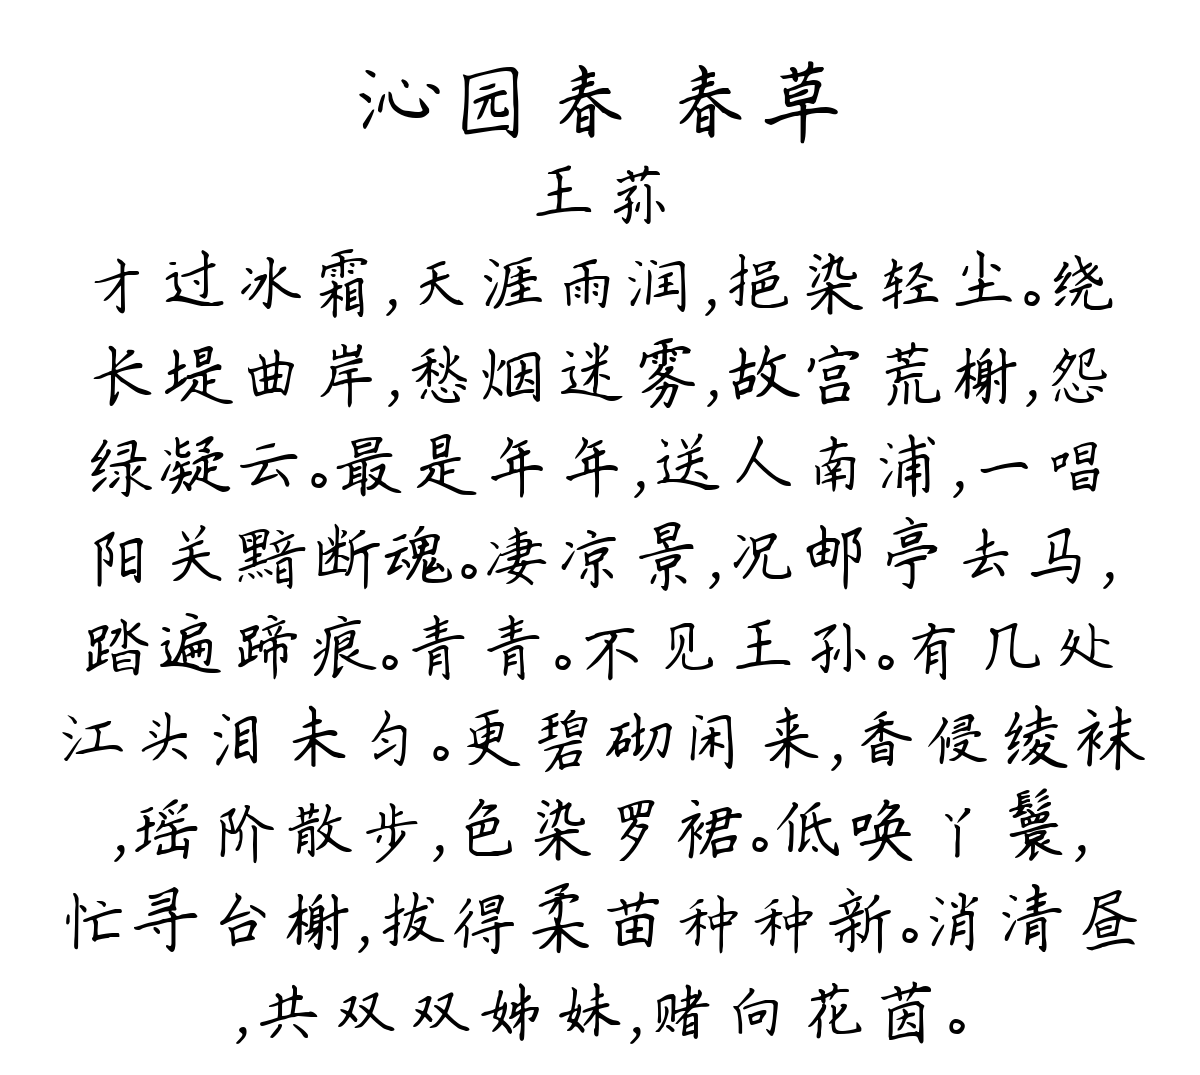 沁园春 春草
王荪
才过冰霜,天涯雨润,挹染轻尘。绕
长堤曲岸,愁烟迷雾,故宫荒榭,怨
绿凝云。最是年年,送人南浦,一唱
阳关黯断魂。凄凉景,况邮亭去马,
踏遍蹄痕。青青。不见王孙。有几处
江头泪未匀。更碧砌闲来,香侵绫袜
,瑶阶散步,色染罗裙。低唤丫鬟,
忙寻台榭,拔得柔苗种种新。消清昼
,共双双姊妹,赌向花茵。